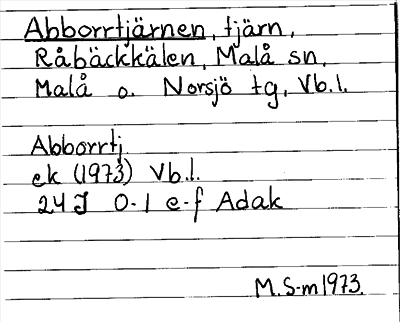 Abborrtjärnen, tjärn,
Råbäckkälen, Malå sn,
Malå o. Norsjö tg, Vb.l.
Abborrtj
ek (1973) Vb.l.
24 J 0-1 e-f Adak
M. S-m 1973.